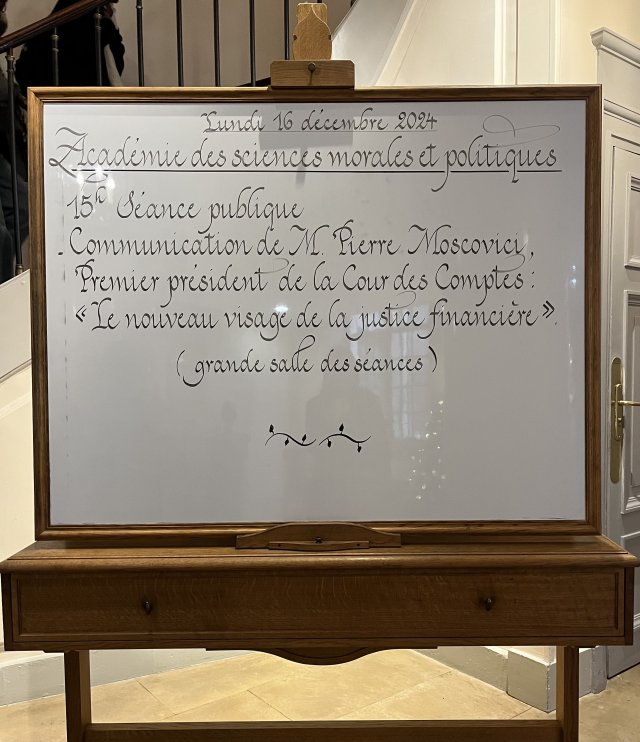 Lundi 16 décembre 2024
Académie des sciences morales et politiques
15h Séance publique
- Communication de M. Pierre Moscovici,
Premier président de la Cour des Comptes :
« Le nouveau visage de la justice financière ».
(grande salle des séances)